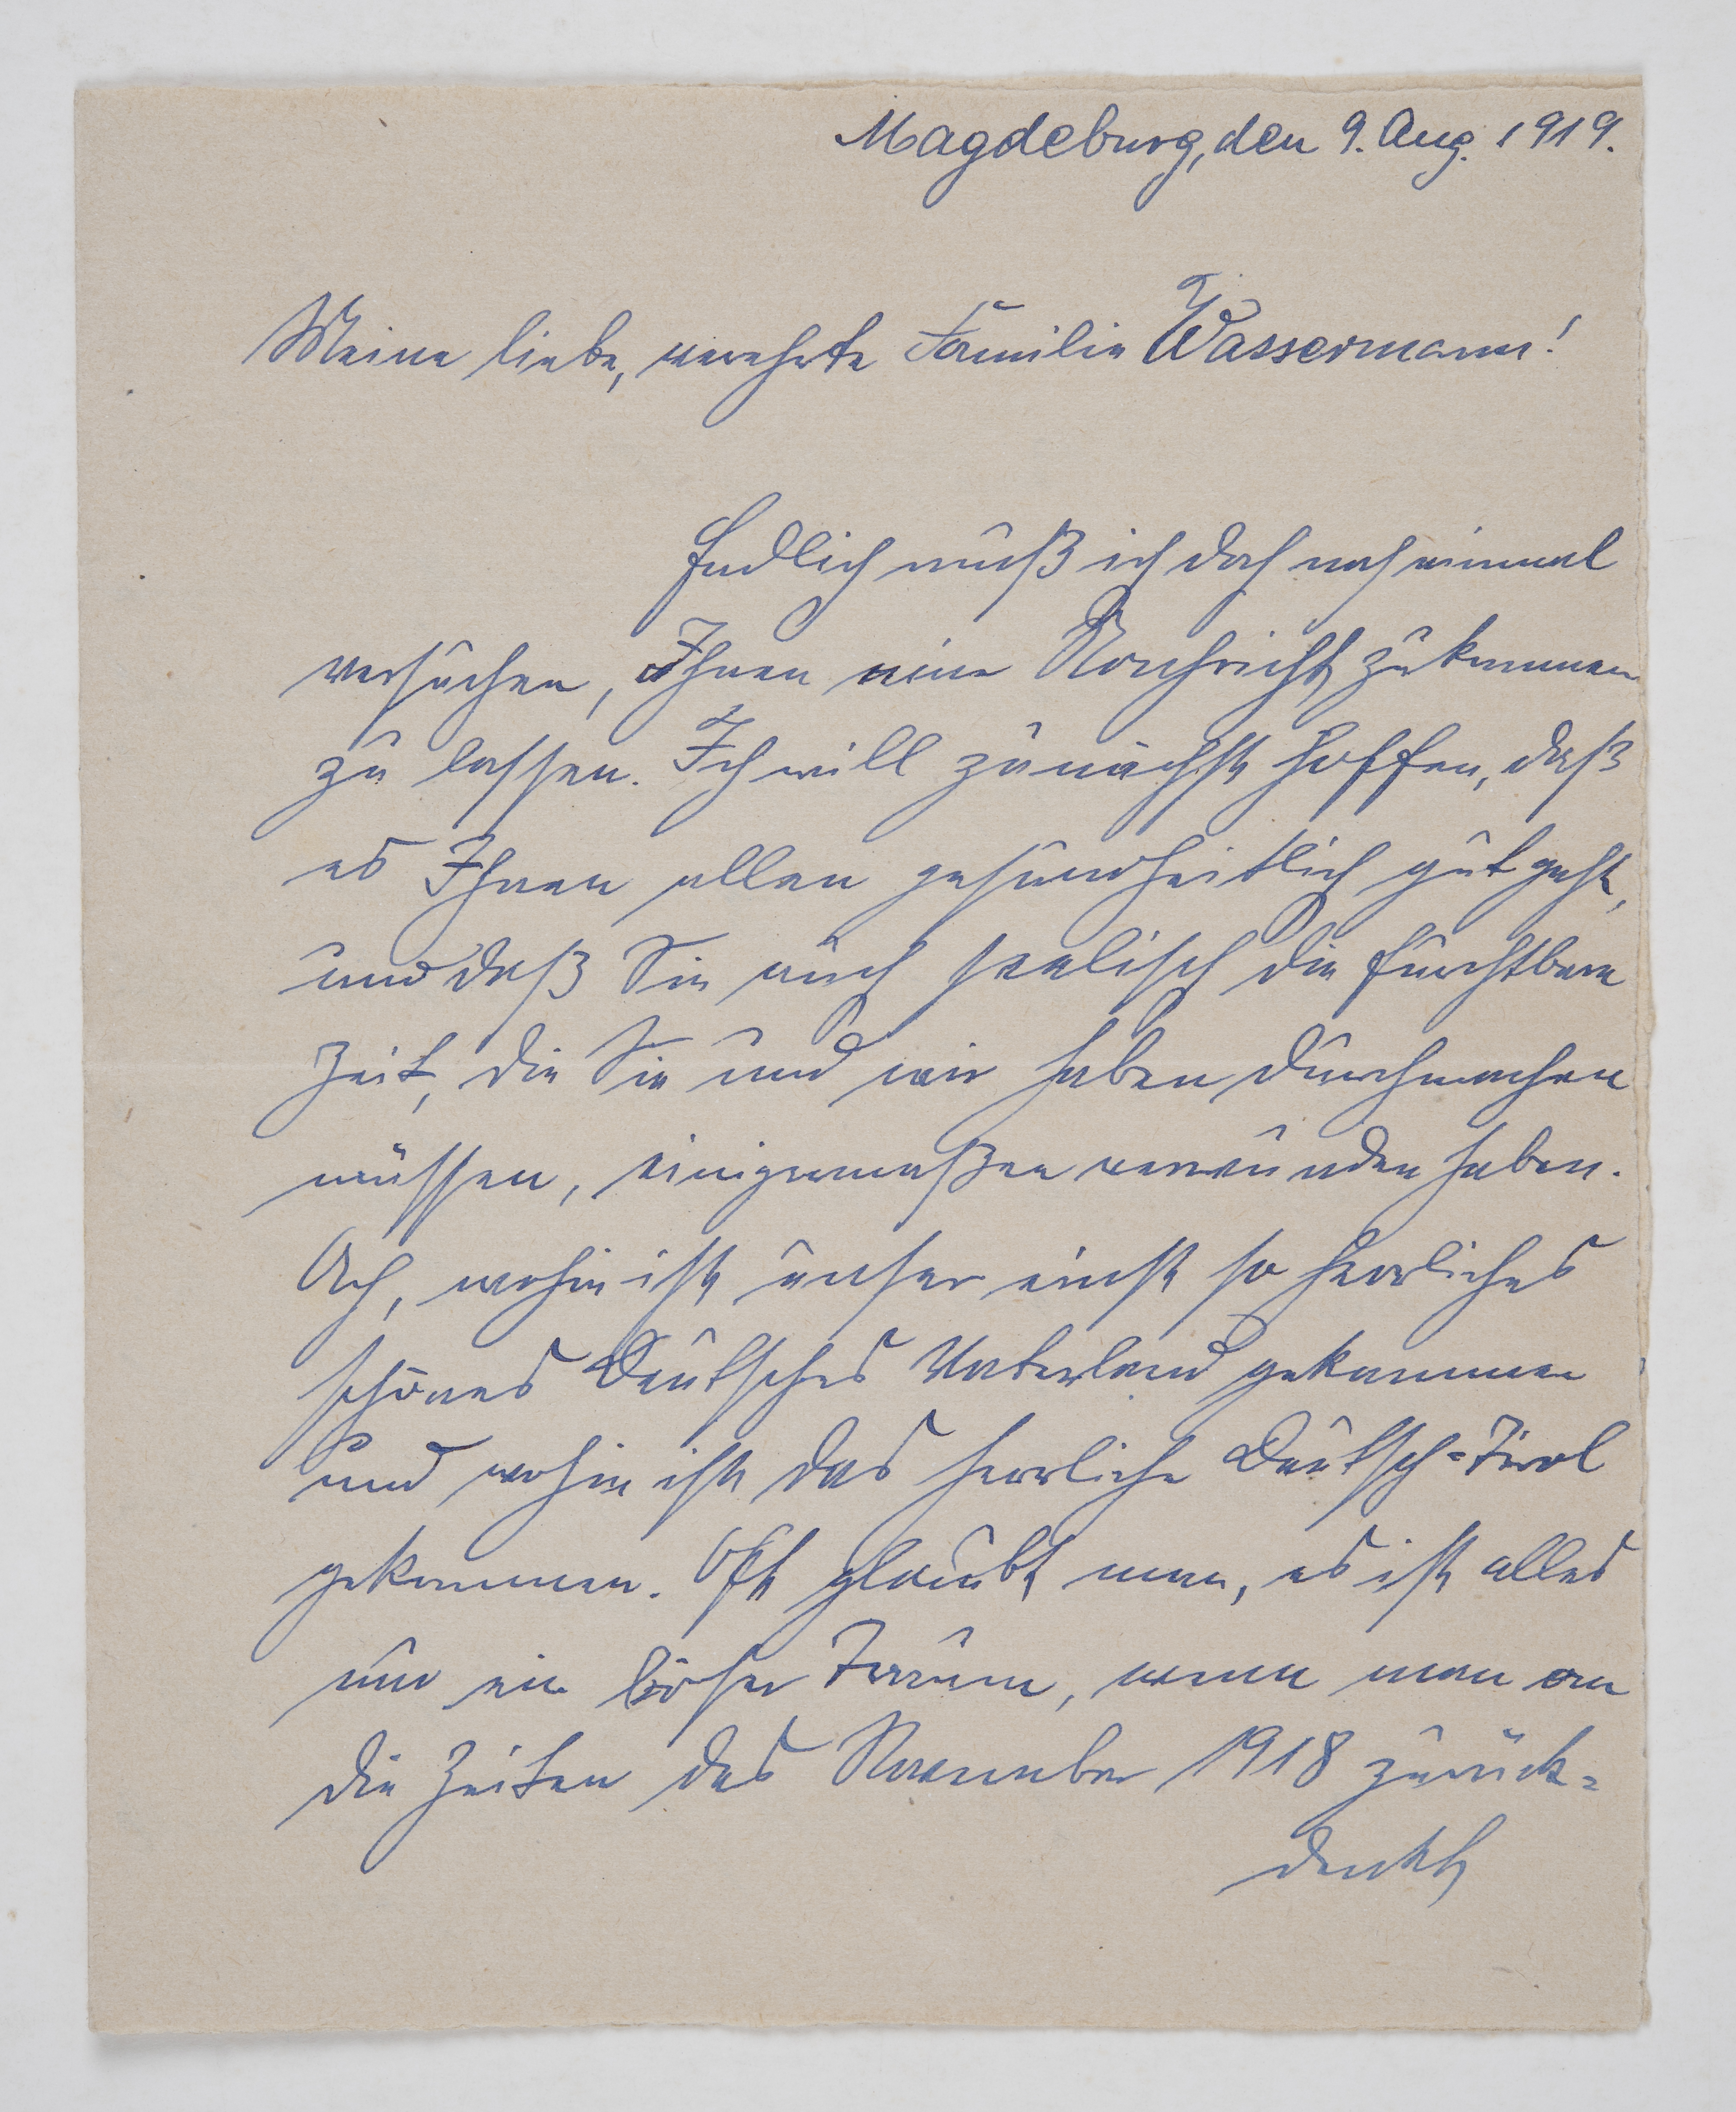 Magdeburg, den 9. Aug. 1919.
Meine liebe, verehrte Familie Wassermann!
Endlich muß ich doch noch einmal
versuchen, Ihnen eine Nachricht zukommen
zu lassen. Ich will zunächst hoffen, daß
es Ihnen allen gesundheitlich gut geht,
und daß Sie auch seelisch die furchtbare
Zeit, die Sie und wir haben durchmachen
müssen, einigermaßen verwunden haben.
Ach, wohin ist unser einst so herrliches
schönes Deutsches Vaterland gekommen
und wohin ist das herrliche Deutsch-Tirol
gekommen. Oft glaubt man, es ist alles
nur ein böser Traum, wenn man an
die Zeiten des November 1918 zurück-
denkt